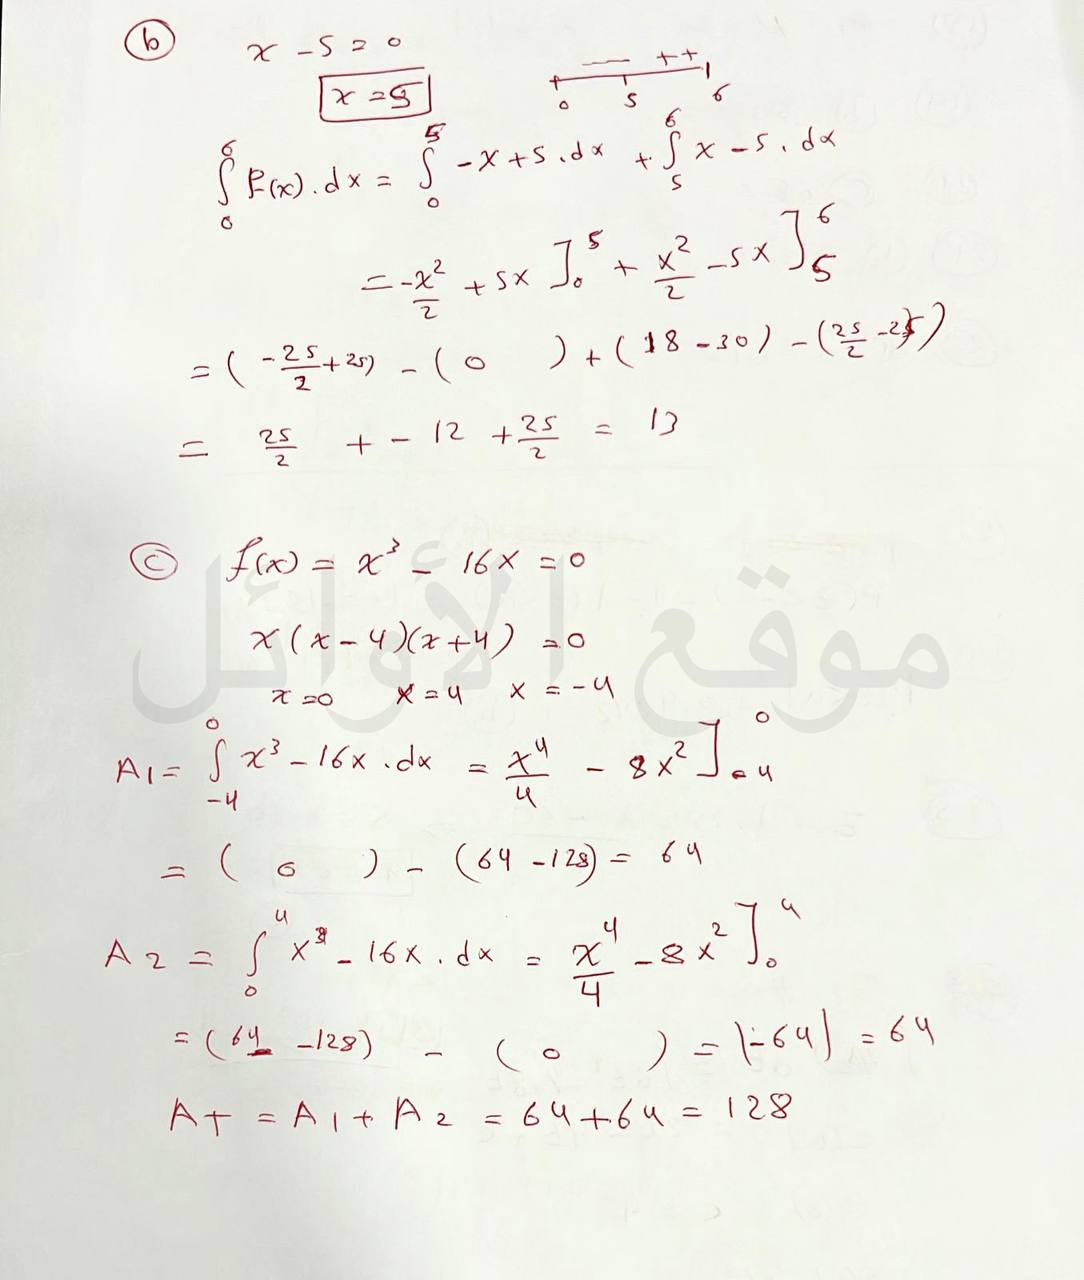 (b) x - 5 = 0
x = 5
—— ++
0 5 6
∫₀⁶ f(x).dx = ∫₀⁵ -x+5.dx + ∫₅⁶ x-5.dx
= -x²/2 + 5x ]₀⁵ + x²/2 - 5x ]₅⁶
= ( -25/2 + 25) - ( 0 ) + ( 18 - 30 ) - ( 25/2 - 25 )
= 25/2 + - 12 + 25/2 = 13
(c) f(x) = x³ - 16x = 0
x(x-4)(x+4) = 0
x=0 x=4 x=-4
A1 = ∫₋₄⁰ x³ - 16x.dx = x⁴/4 - 8x² ]₋₄⁰
= ( 0 ) - (64 - 128) = 64
A2 = ∫₀⁴ x³ - 16x.dx = x⁴/4 - 8x² ]₀⁴
= (64 - 128) - ( 0 ) = |-64| = 64
AT = A1 + A2 = 64+64 = 128
موقع الأوائل